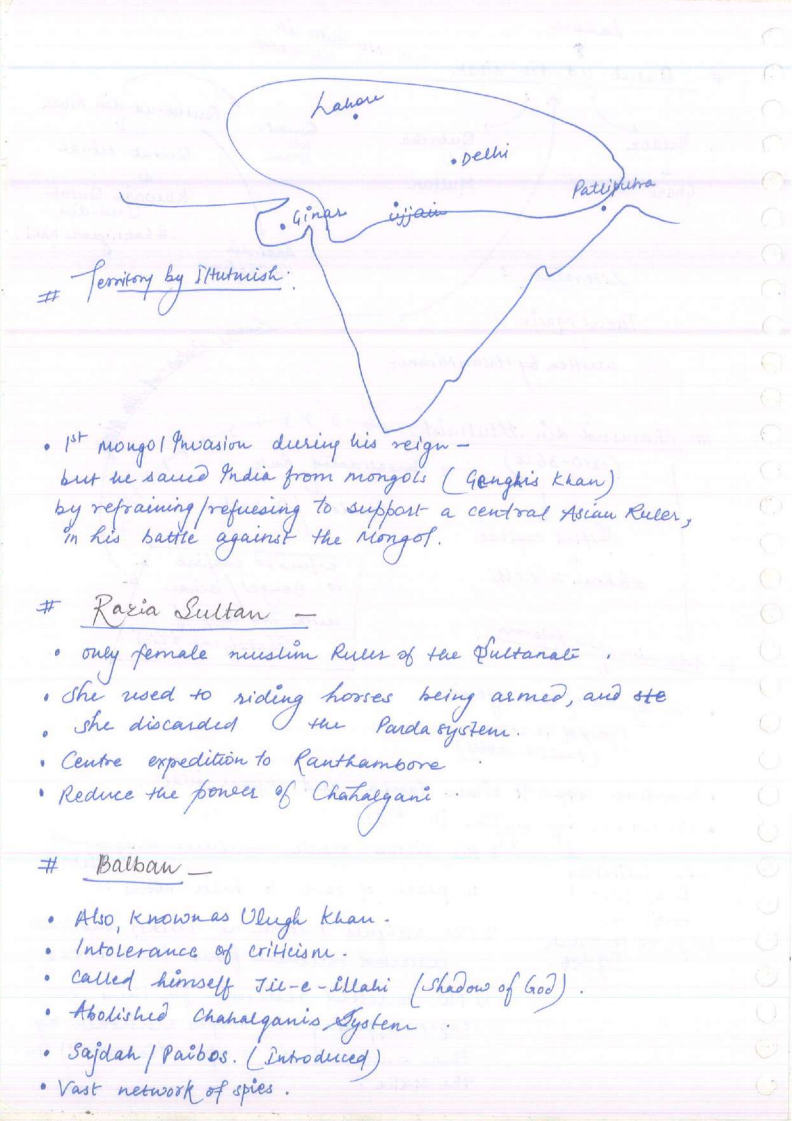 Lahore
• Delhi
Patliputra
• Ginar
ujjain
# Territory by Iltutmish.
• 1st Mongol Invasion during his reign –
but he saved India from mongols (Genghis Khan)
by refraining/refuesing to support a central Asian Ruler,
in his battle against the Mongol.
# Razia Sultan –
• only female muslim Ruler of the Sultanate .
• She used to riding horses being armed, and ste
• she discarded the Parda system.
• Centre expedition to Ranthambore
• Reduce the power of Chahalgani
# Balban –
• Also, Known as Ulugh Khan.
• Intolerance of criticism.
• Called himself Jil-e-Illahi (Shadow of God).
• Abolished Chahalganis System .
• Sajdah / Paibos. (Introduced)
• Vast network of spies .